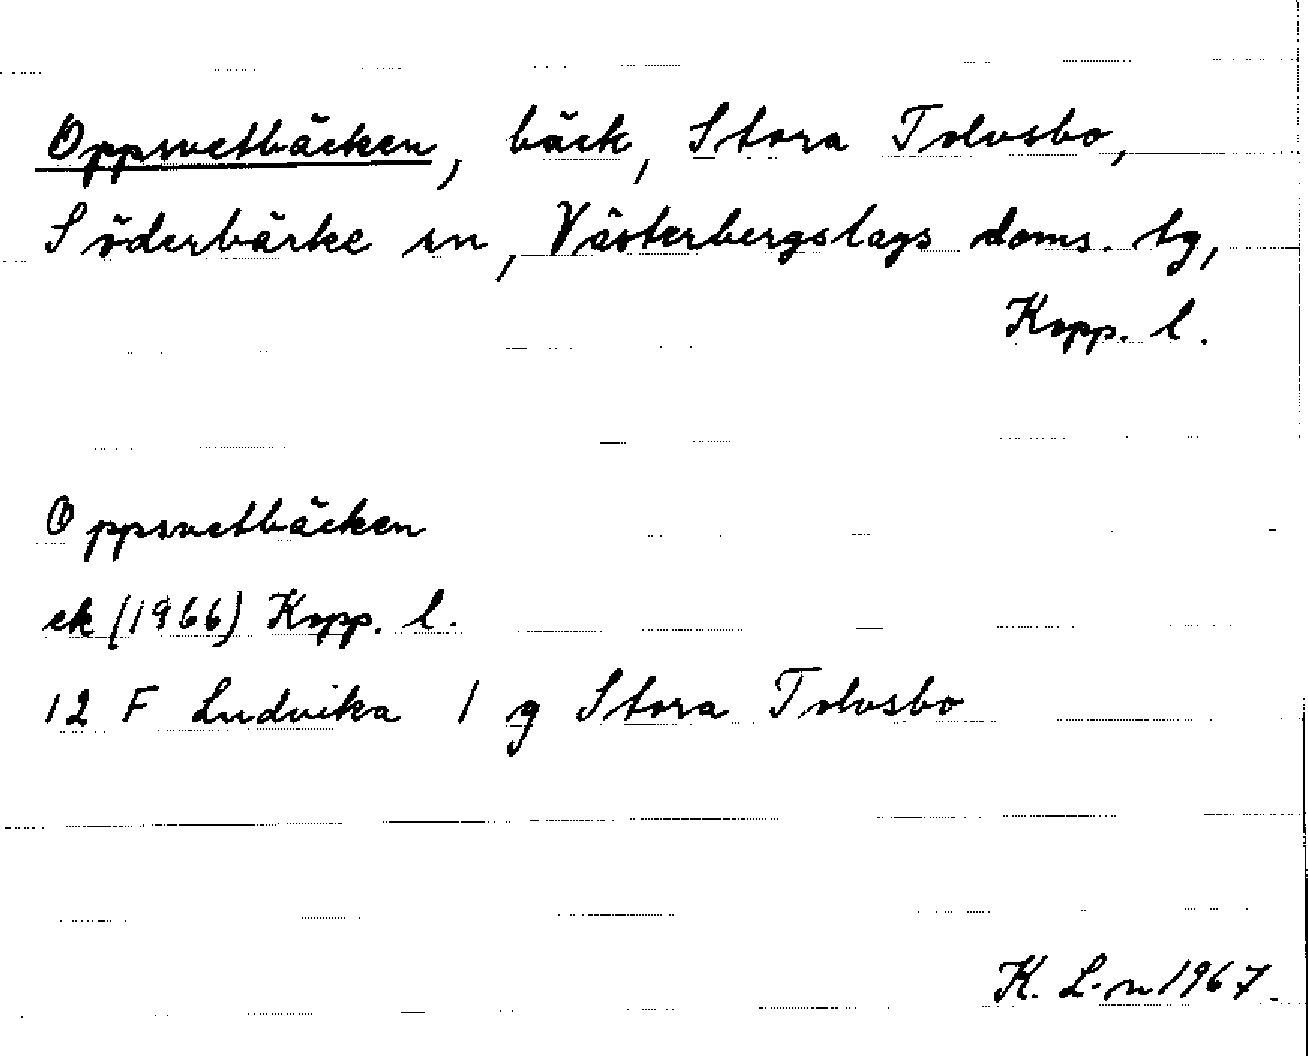 Oppsvetbäcken, bäck, Stora Tolvsbo,
Söderbärke sn, Västerbergslags doms. tg,
Kopp. l.
Oppsvetbäcken
ek (1966) Kopp. l.
12 F Ludvika 1 g Stora Tolvsbo
K. L-n 1967.